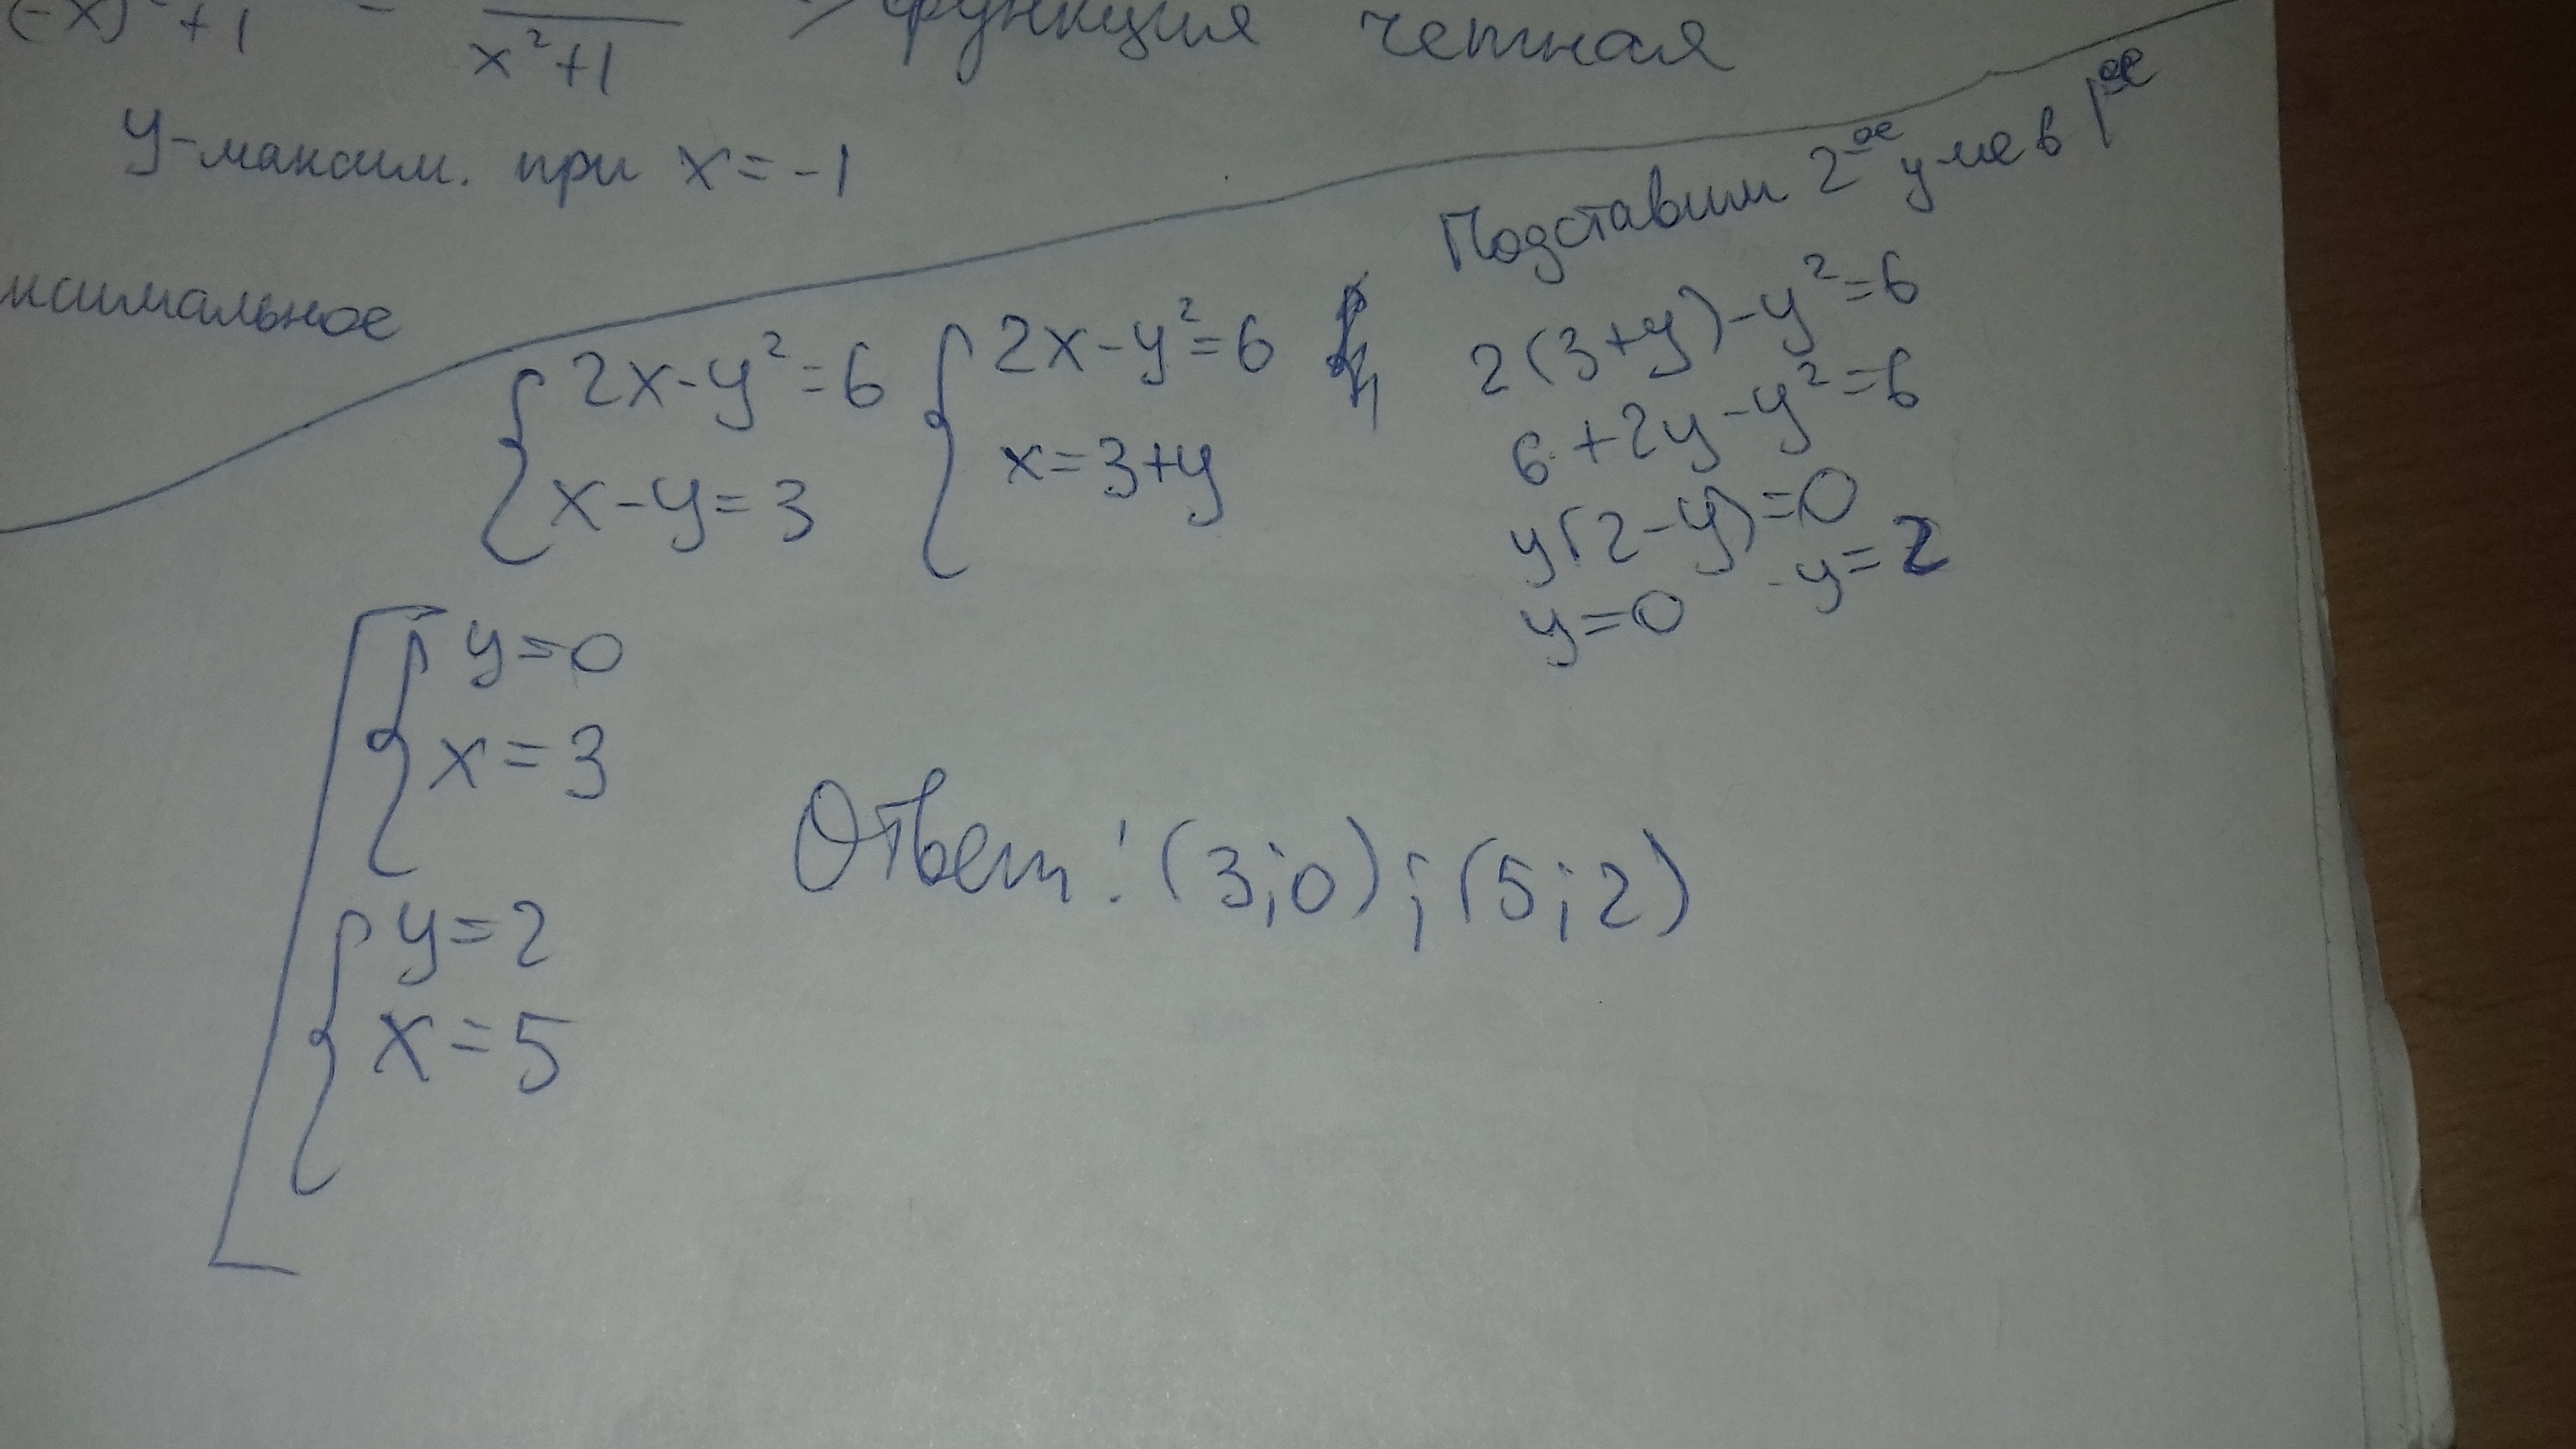 (-x)² + 1 = x²+1 => функция четная
y-максим. при x = -1
ксимальное
Подставим 2ое у-ие в 1ое
{ 2x - y² = 6 { 2x - y² = 6
x - y = 3 x = 3+y
2(3+y) - y² = 6
6 + 2y - y² = 6
y(2-y) = 0
y = 0 y = 2
[ { y = 0
x = 3
{ y = 2
x = 5
Ответ: (3;0); (5;2)